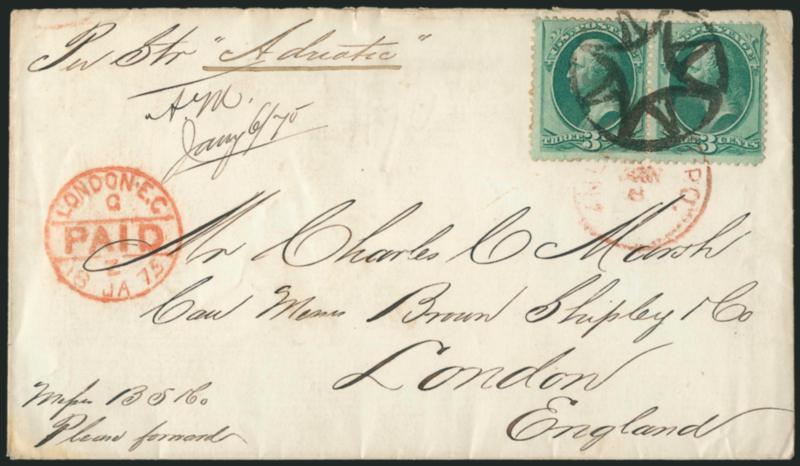 Per Str "Adriatic"
A.M.
Jany 6/75
U.S. POSTAGE
THREE 3
3 CENTS
LONDON·E.C
PAID
18 JA 75
Mr Charles C Marsh
Care Messrs Brown Shipley & Co
London
England
Messrs B S & Co
Please forward